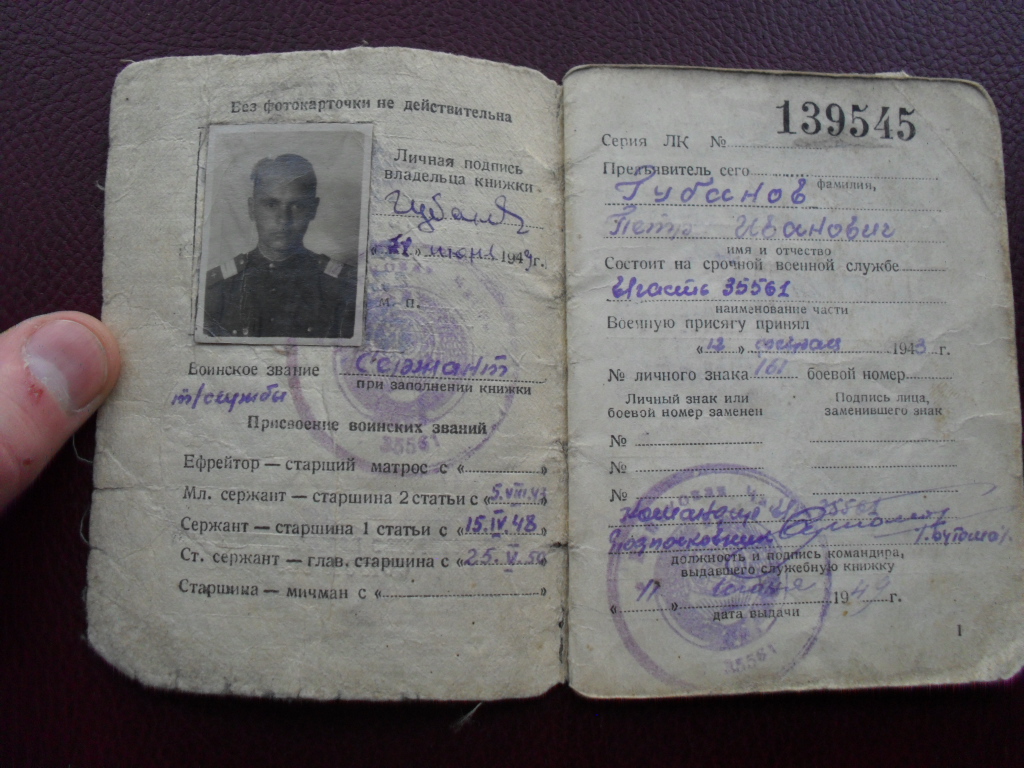 Без фотокарточки не действительна
Личная подпись
владельца книжки
Губанов
1949 г.
м. п.
Воинское звание Сержант
при заполнении книжки
т/службы
Присвоение воинских званий
35561
Ефрейтор — старший матрос с « »
Мл. сержант — старшина 2 статьи с «5.VIII.43»
Сержант — старшина 1 статьи с «15.IV.48»
Ст. сержант — глав. старшина с «25.VI.50»
Старшина — мичман с « »
139545
Серия ЛК №
Предъявитель сего
Губанов
фамилия,
Петр Иванович
имя и отчество
Состоит на срочной военной службе
В/часть 35561
наименование части
Военную присягу принял
«12» 1943 г.
№ личного знака 161 боевой номер
Личный знак или
боевой номер заменен
Подпись лица,
заменившего знак
№
№
№
Командир 35561
Подполковник
должность и подпись командира,
выдавшего служебную книжку
« » 194 г.
дата выдачи
35561
1